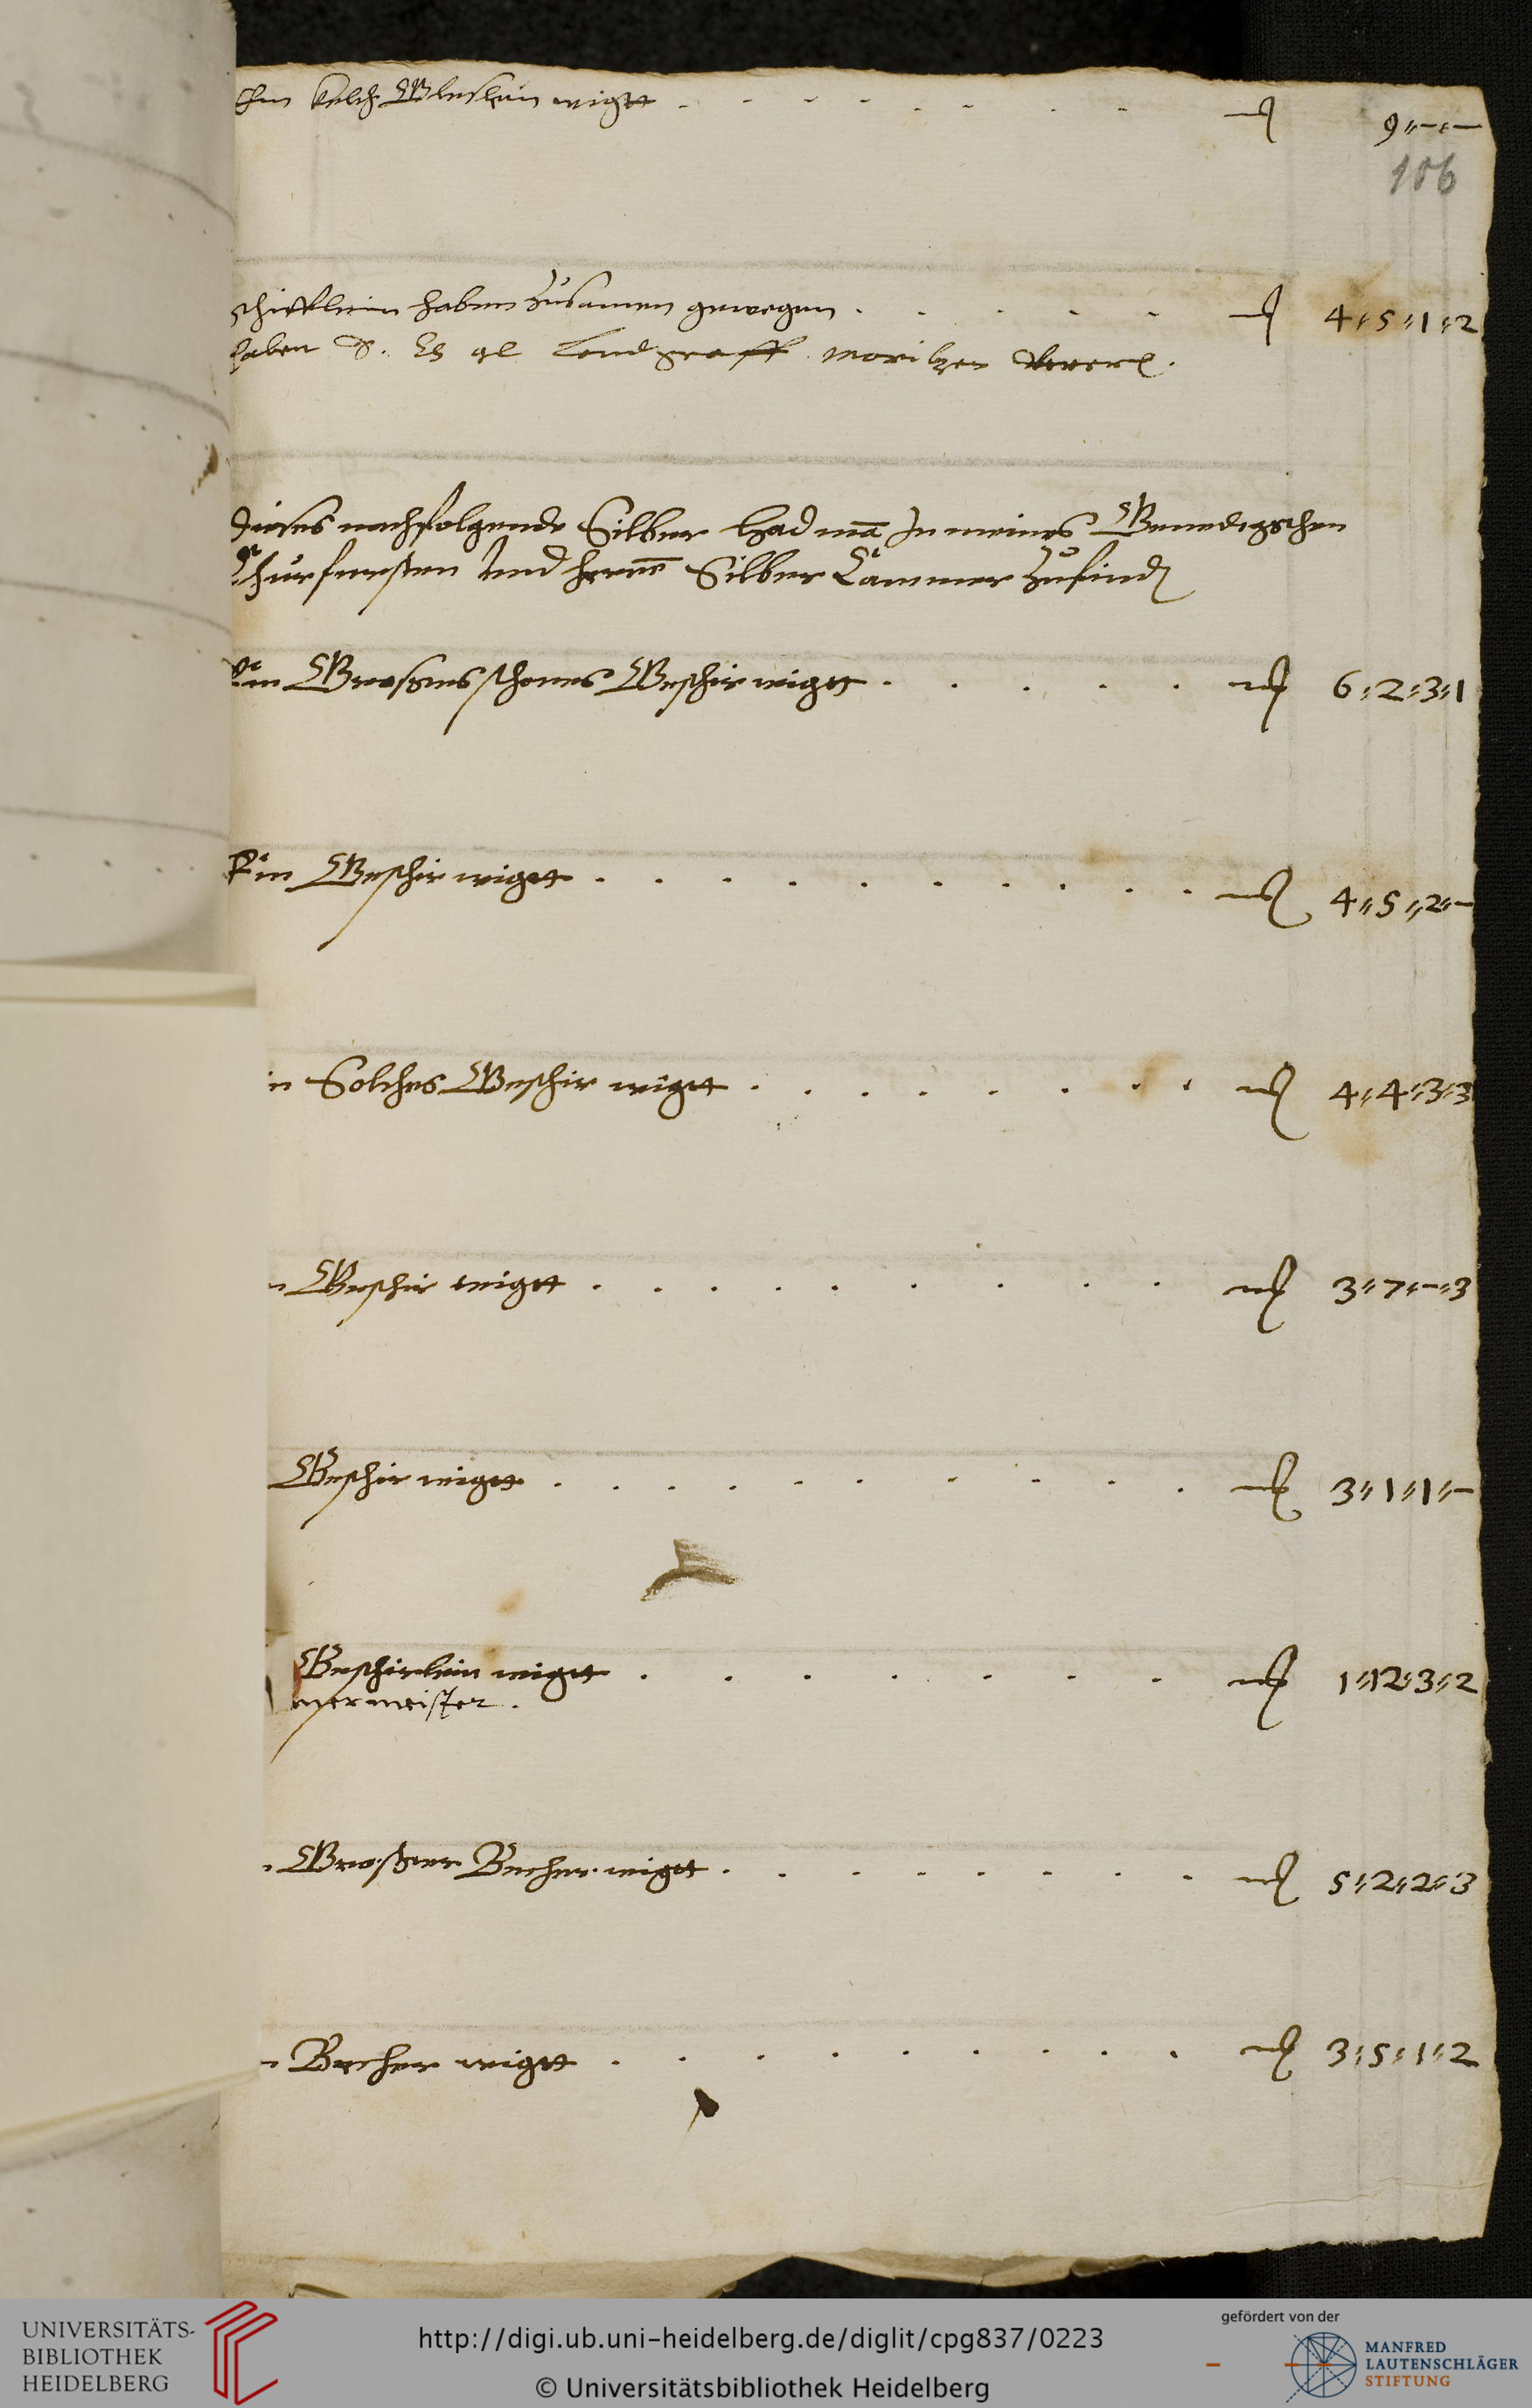 Ein kelch Gleslein wigtt . . . . . . . . 9 〃 – 〃 –
106
schifflein haben zusamen gewegen . . . . . . 4 〃 5 〃 1 〃 2
haben S. Es gl Landgraff moritzen
dieses nachfolgende Silber had mā In meines Genedigschen
Churfursten Und herrnn Silber Cammer zufind
Ein Grosses schones Geschir wigtt . . . . . 6 〃 2 〃 3 〃 1
Ein Geschir wigtt . . . . . . . . . 4 〃 5 〃 2 〃 –
in Solches Geschir wigtt . . . . . . . . 4 〃 4 〃 3 〃 3
n Geschir wigtt . . . . . . . . . 3 〃 7 〃 – 〃 3
Geschir wigtt . . . . . . . . . . 3 〃 1 〃 1 〃 –
Geschirlein wigtt . . . . . . . 1 〃 12 〃 3 〃 2
mermeister .
n Grosser Becher wigtt . . . . . . . . 5 〃 2 〃 2 〃 3
n Becher wigtt . . . . . . . . 3 〃 5 〃 1 〃 2
UNIVERSITÄTS-
BIBLIOTHEK
HEIDELBERG
http://digi.ub.uni-heidelberg.de/diglit/cpg837/0223
© Universitätsbibliothek Heidelberg
gefördert von der
MANFRED
LAUTENSCHLÄGER
STIFTUNG